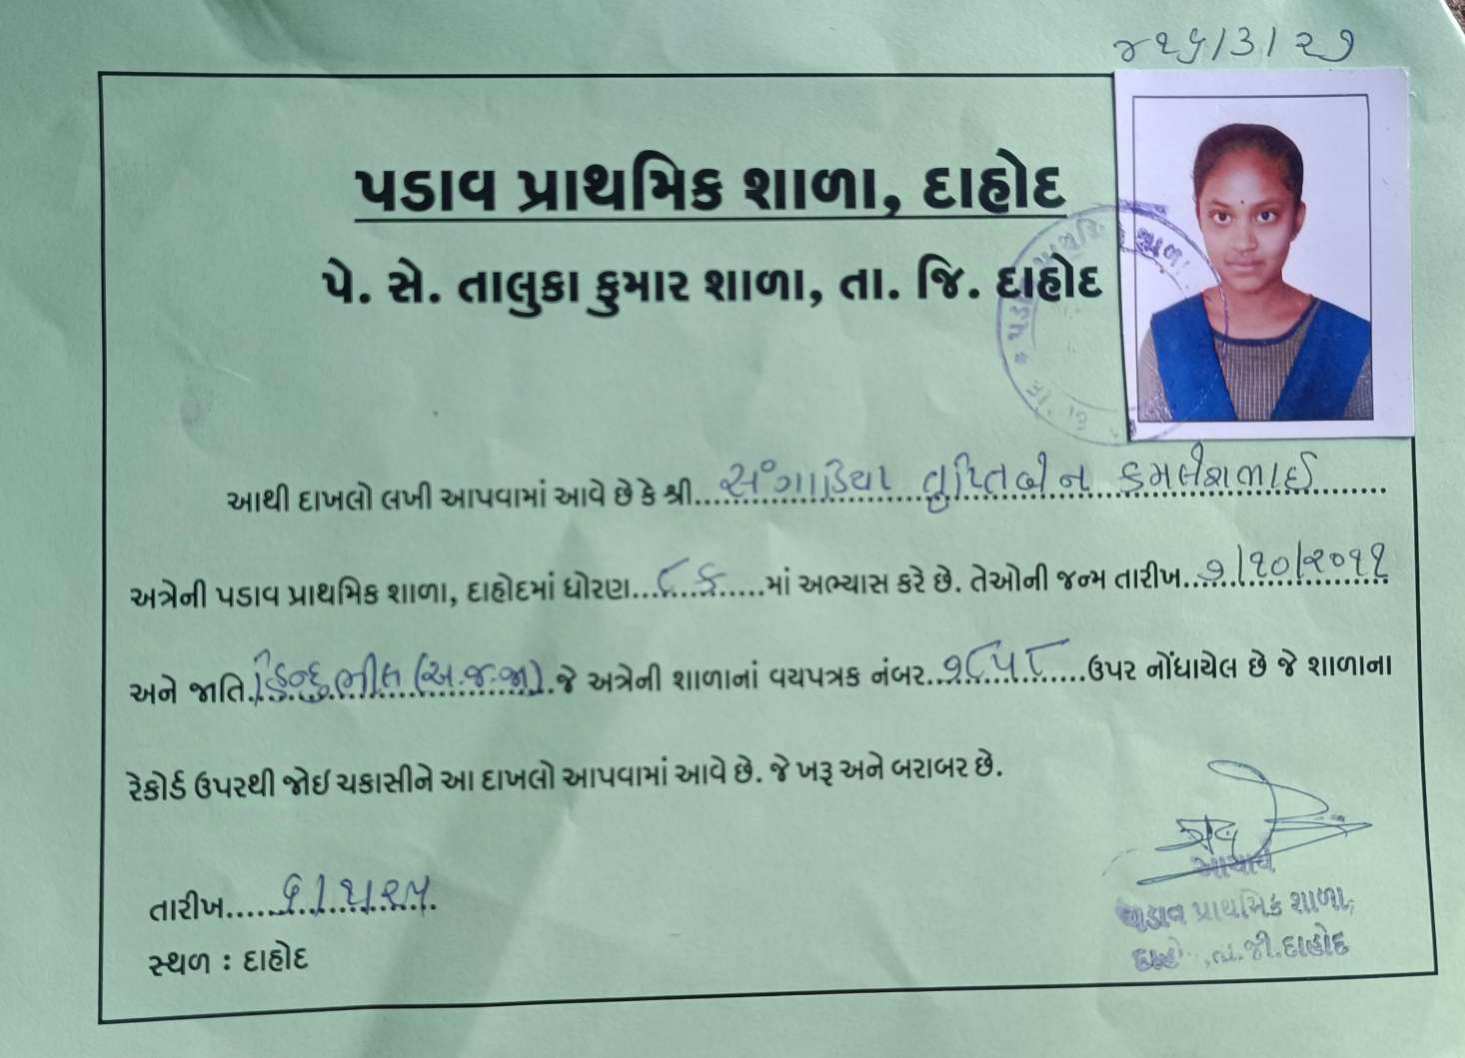 પડાવ પ્રાથમિક શાળા, દાહોદ
પે. સે. તાલુકા કુમાર શાળા, તા. જિ. દાહોદ
આથી દાખલો લખી આપવામાં આવે છે કે શ્રી સંગાડિયા તૃપ્તિબેન કમલેશભાઈ
અત્રેની પડાવ પ્રાથમિક શાળા, દાહોદમાં ધોરણ ૮ ક માં અભ્યાસ કરે છે. તેઓની જન્મ તારીખ ૭/૧૦/૨૦૧૧
અને જાતિ હિન્દુ ભીલ (અ.જ.જા) જે અત્રેની શાળાનાં વયપત્રક નંબર ૭૮૫૮ ઉપર નોંધાયેલ છે જે શાળાના
રેકોર્ડ ઉપરથી જોઇ ચકાસીને આ દાખલો આપવામાં આવે છે. જે ખરૂ અને બરાબર છે.
તારીખ
સ્થળ : દાહોદ
આચાર્ય
પડાવ પ્રાથમિક શાળા,
તા.જી.દાહોદ